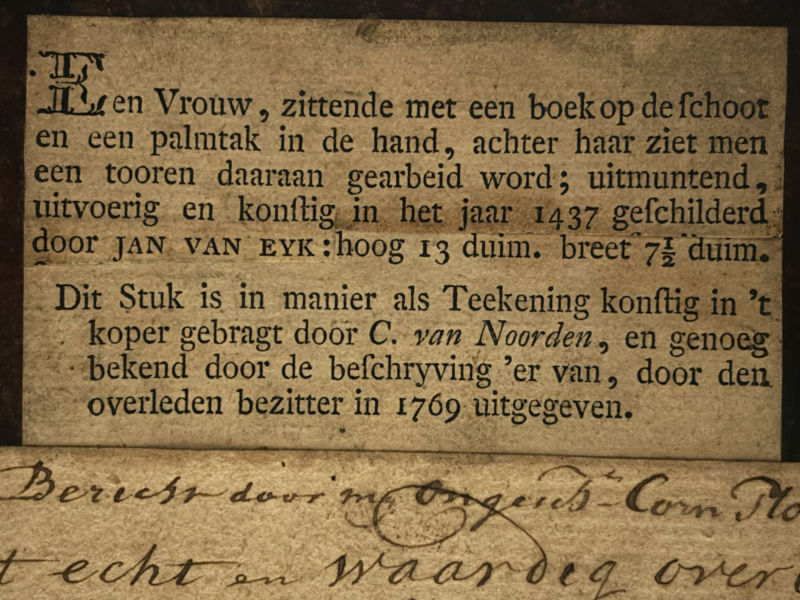 Een Vrouw, zittende met een boek op de ſchoot
en een palmtak in de hand, achter haar ziet men
een tooren daaraan gearbeid word; uitmuntend,
uitvoerig en konſtig in het jaar 1437 geſchilderd
door JAN VAN EYK: hoog 13 duim. breet 7½ duim.
Dit Stuk is in manier als Teekening konſtig in 't
koper gebragt door C. van Noorden, en genoeg
bekend door de beſchryving 'er van, door den
overleden bezitter in 1769 uitgegeven.
door Corn
echt en waardig over